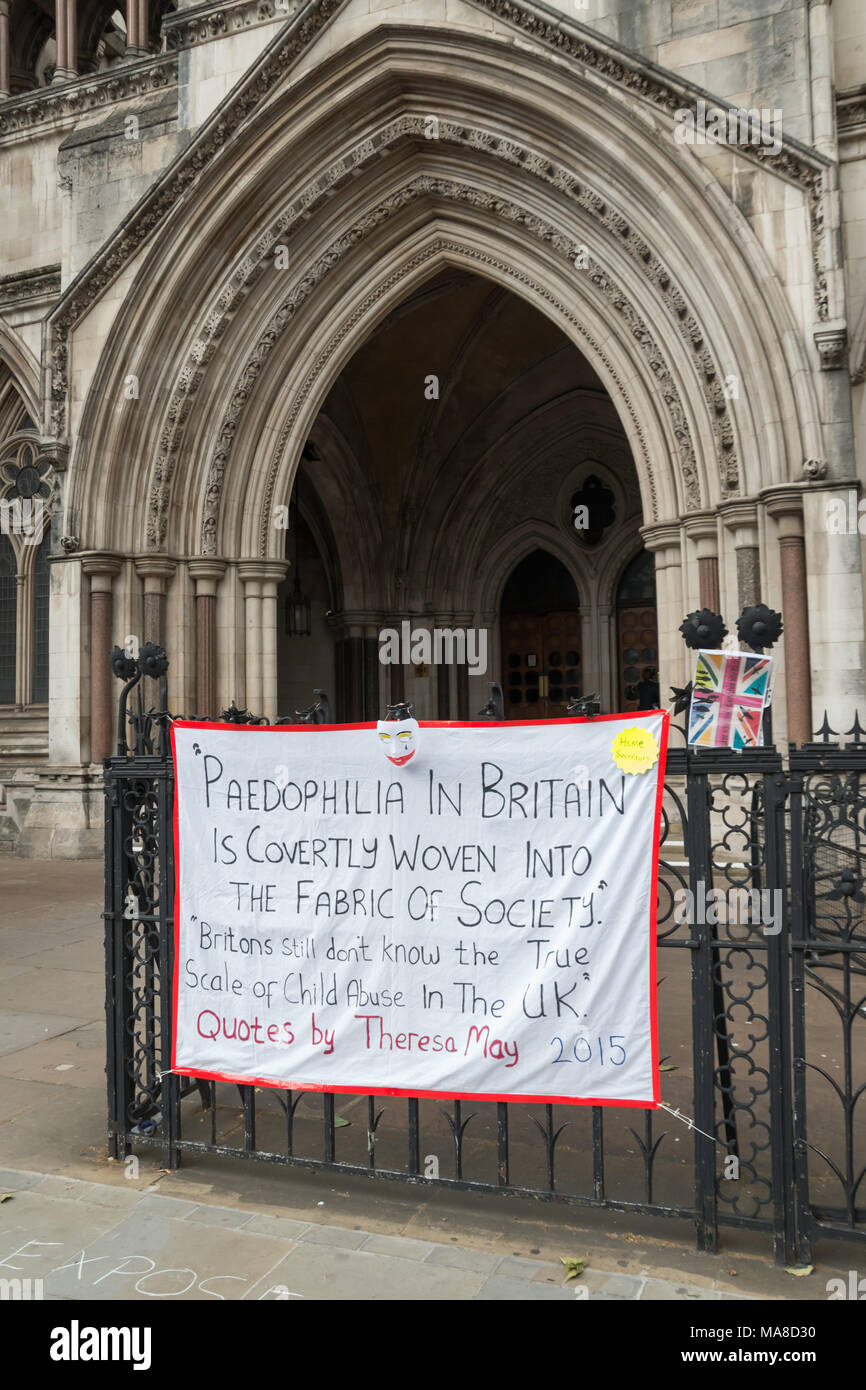 Home
Secretary
"PAEDOPHILIA IN BRITAIN
IS COVERTLY WOVEN INTO
THE FABRIC OF SOCIETY."
"Britons still don't know the True
Scale of Child Abuse In The UK."
Quotes by Theresa May 2015
EXPOSE
a
alamy
alamy
a
alamy
a
alamy
Image ID: MA8D30
www.alamy.com